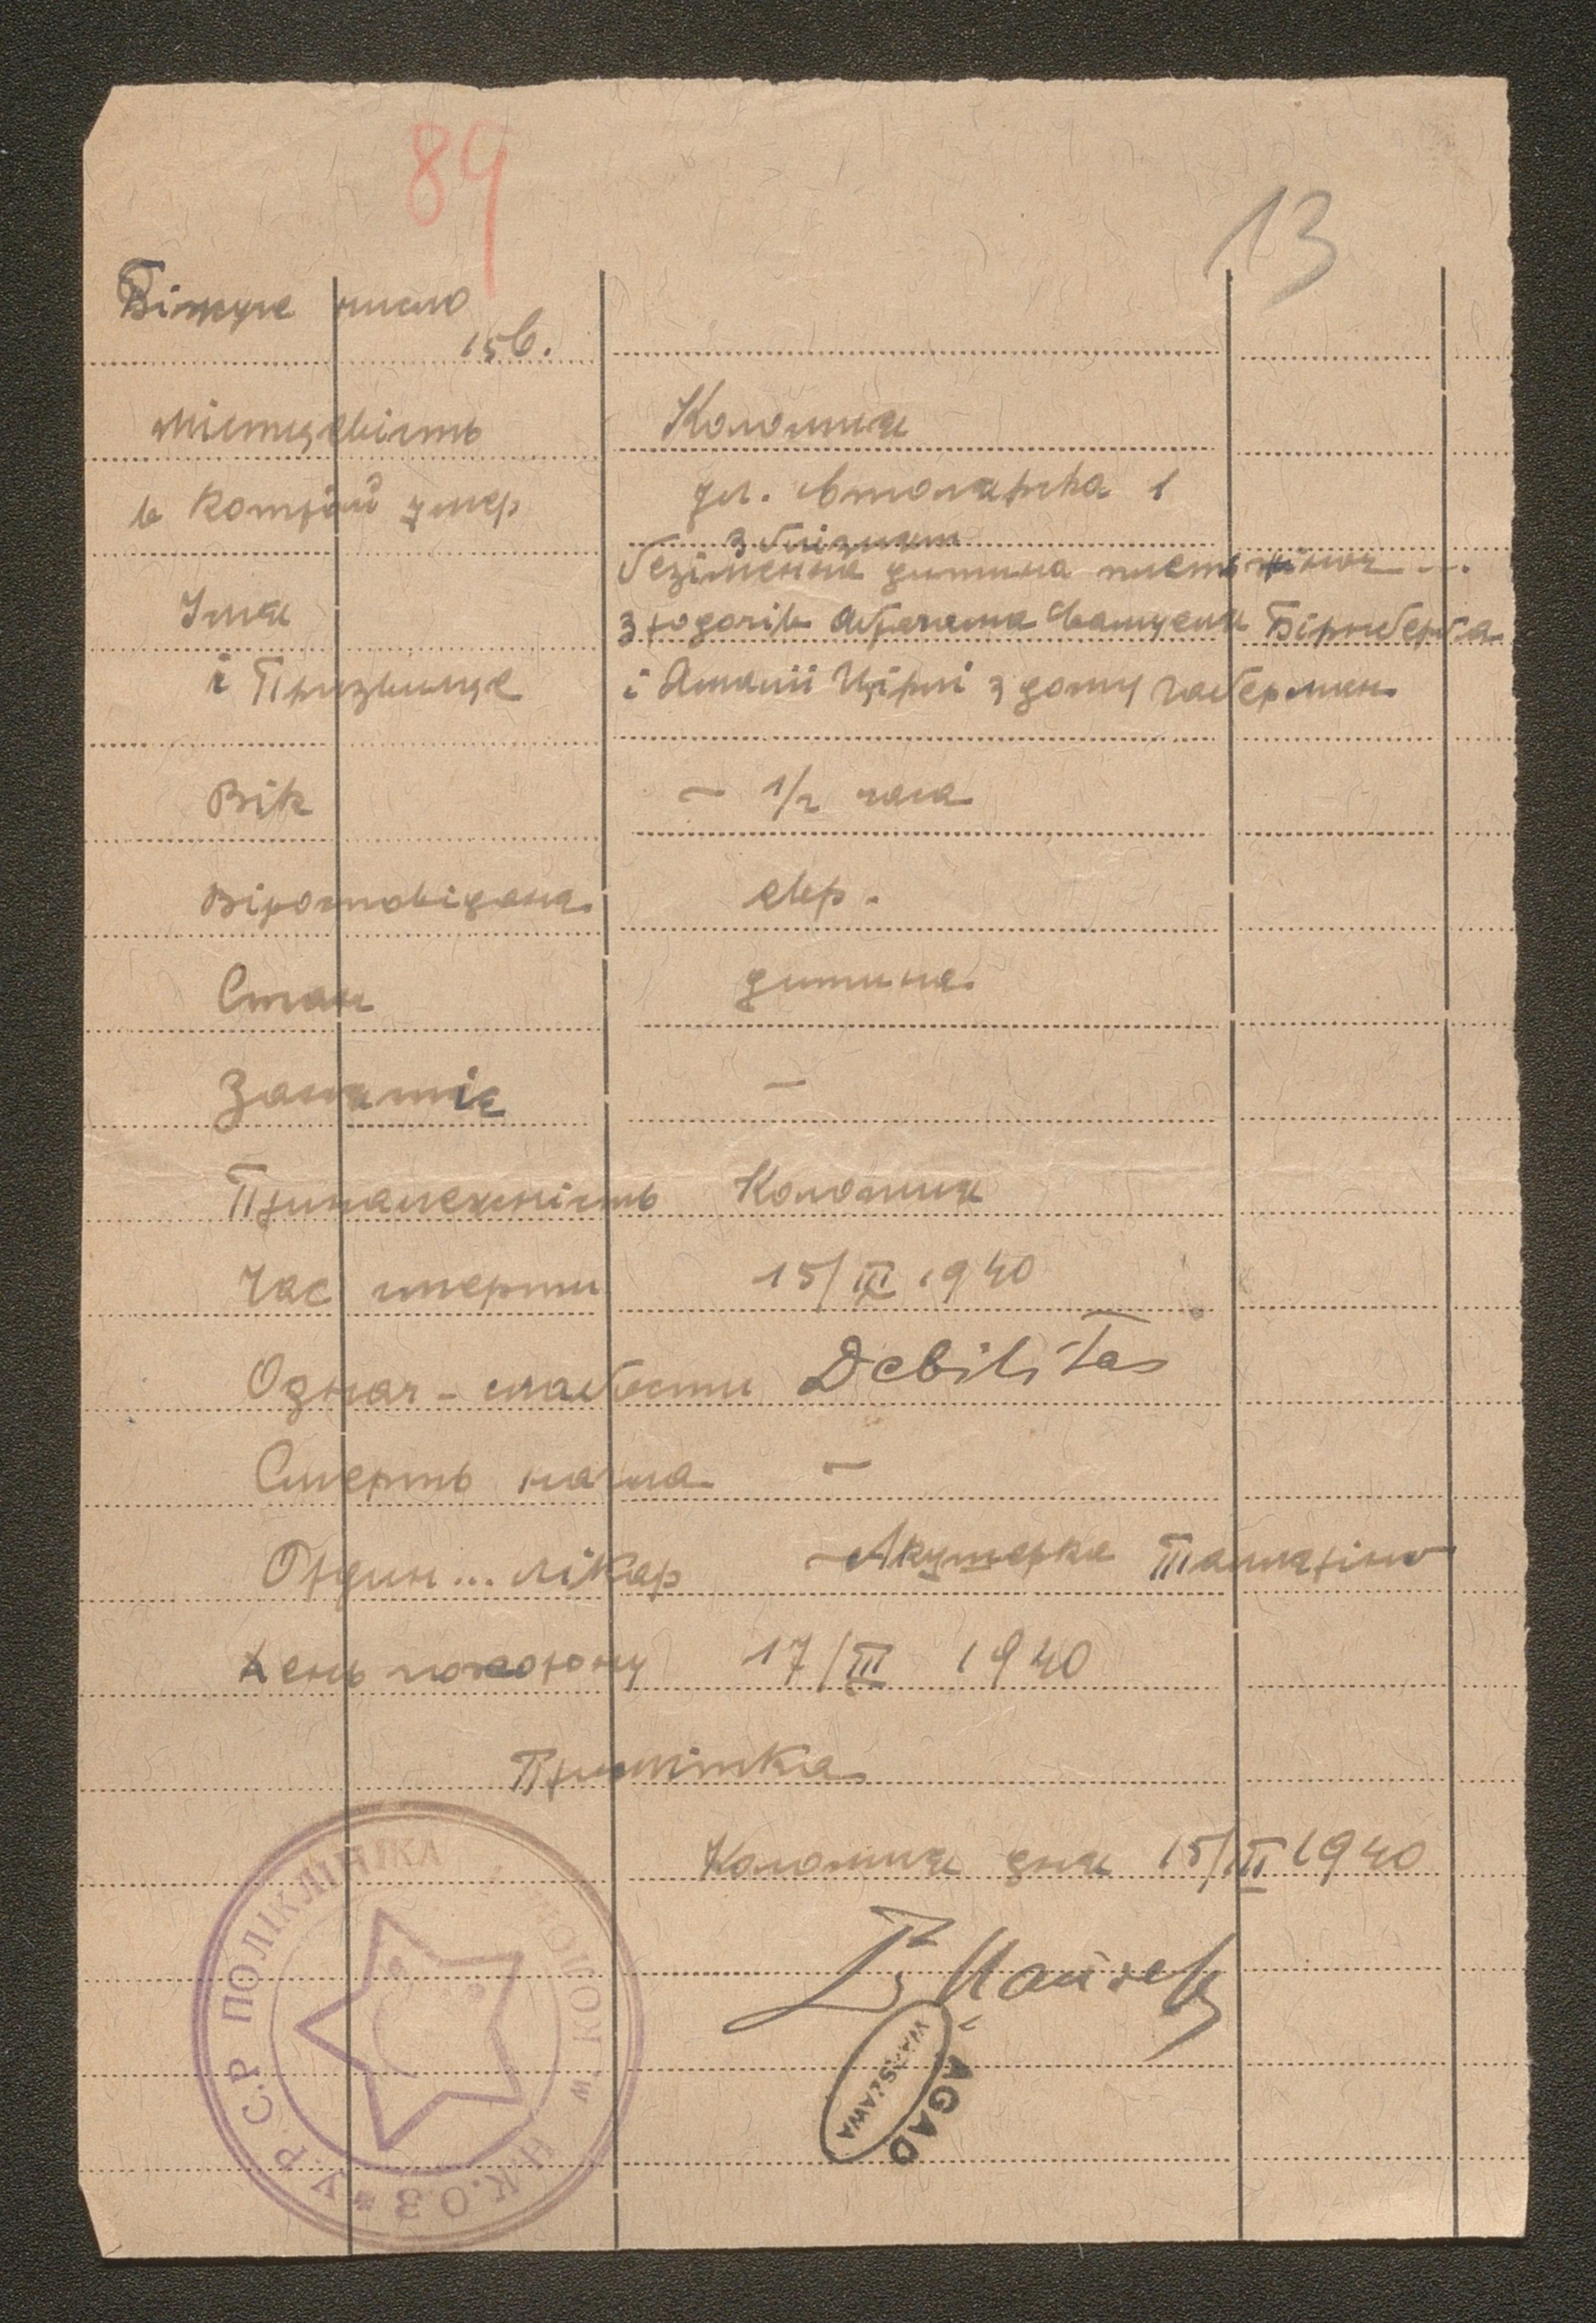 89
13
Біжуче число
156.
Місцевість Коломия
в котрій умер ул. Столярска 1
з близнят
безіменна дитина плеть жіноч...
Імя з родичів Абрагама Самуеля Бірнберга
і Прізвище і Амалії Цірлі з дому Габерман
Вік – 1/2 часа
Віроісповідана евр.
Стан дитина
Занятіє –
Приналежність Коломия
Час смерти 15/III 1940
Означ - слабости Debilitas
Смерть нагла –
Ордин... лікар – Акушерка
День похорону 17/III 1940
Примітка
Коломия дня 15/III 1940
У.Р.С.Р ПОЛІКЛІНІКА
Н.К.О.З.
м. КОЛОМ
AGAD
WARSZAWA